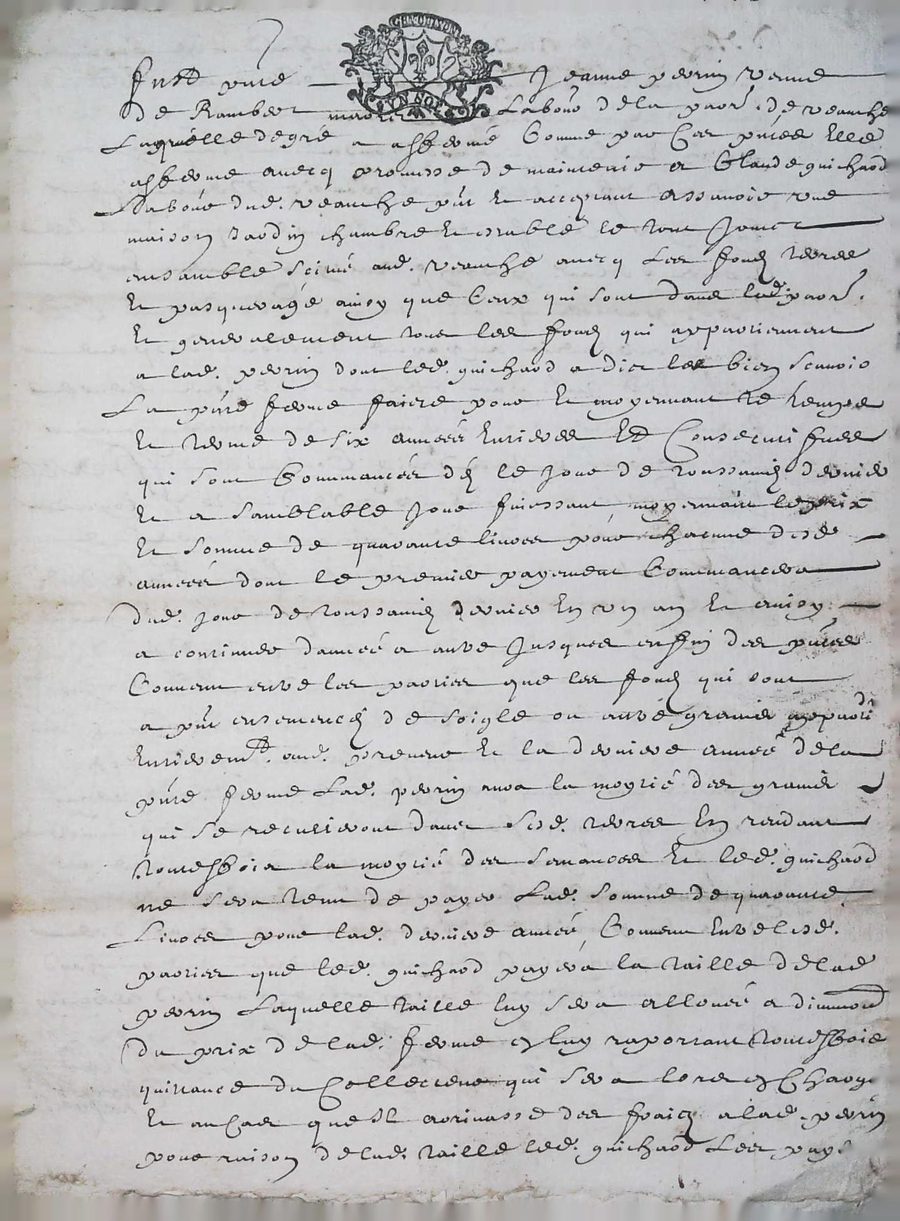 GEN DE LYON
VN SOL
fust pnte Jeanne perrin vefve
de Rambert labour de la paor. de veauche
Laquelle de gré a affermé Comme par Ces pntes Elle
afferme avecq promesse de maintenir a Glaude guichard
Labour dud. veauche pnt Et acceptant assavoir une
maison Jardin chambre Et estable le tout Joinct
ensamble scitué aud. veauche avecq Les fonds terres
Et pasquerage ainsy que Ceux qui sont dans lad. paor.
Et generalement tous les fonds qui appartiennent
a lad. perrin dont led. guichard a dict les bien scavoir
La pnte ferme faicte pour Et moyennant le temps
Et terme de six années Entieres Et Consecutifves
qui sont Commancées dés le Jour de toussainctz dernier
Et a samblable Jour finissant moyennant le prix
Et somme de quarante livres pour chacune desd.
années dont le premier payement Commancera
dud. Jour de toussainctz dernier En un an Et ainsy
a continuer d'année a autre Jusques en fin des pntes
Convenu entre les parties que les fonds qui sont
a pnt ensemencés de soigle ou autre grains
Entierem.t aud. preneur Et la derniere année de la
pnte ferme Lad. perrin aura la moytié des grains
qui se recullieront dans sesd. terres En rendant
toutesfois la moytié des semances Et led. guichard
ne sera tenu de payer Lad. somme de quarante
Livres pour lad. derniere année Convenu Entre lesd.
parties que led. guichard payera la taille de lad.
perrin Laquelle taille luy sera allouée a diminu.on
du prix de lad. ferme En luy raportant toutesfois
quittance du Collecteur qui sera lors En Charge
Et au Cas quesil arrivasse des fraicz a lad. perrin
pour raison de lad. taille led. guichard Les pay